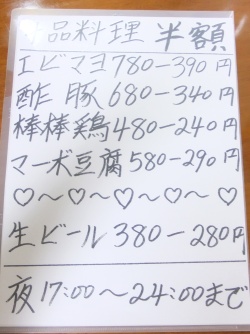 一品料理 半額
エビマヨ780-390円
酢豚 680-340円
棒棒鶏480-240円
マーボ豆腐580-290円
♡～♡～♡～♡～♡
生ビール 380-280円
夜17:00～24:00まで